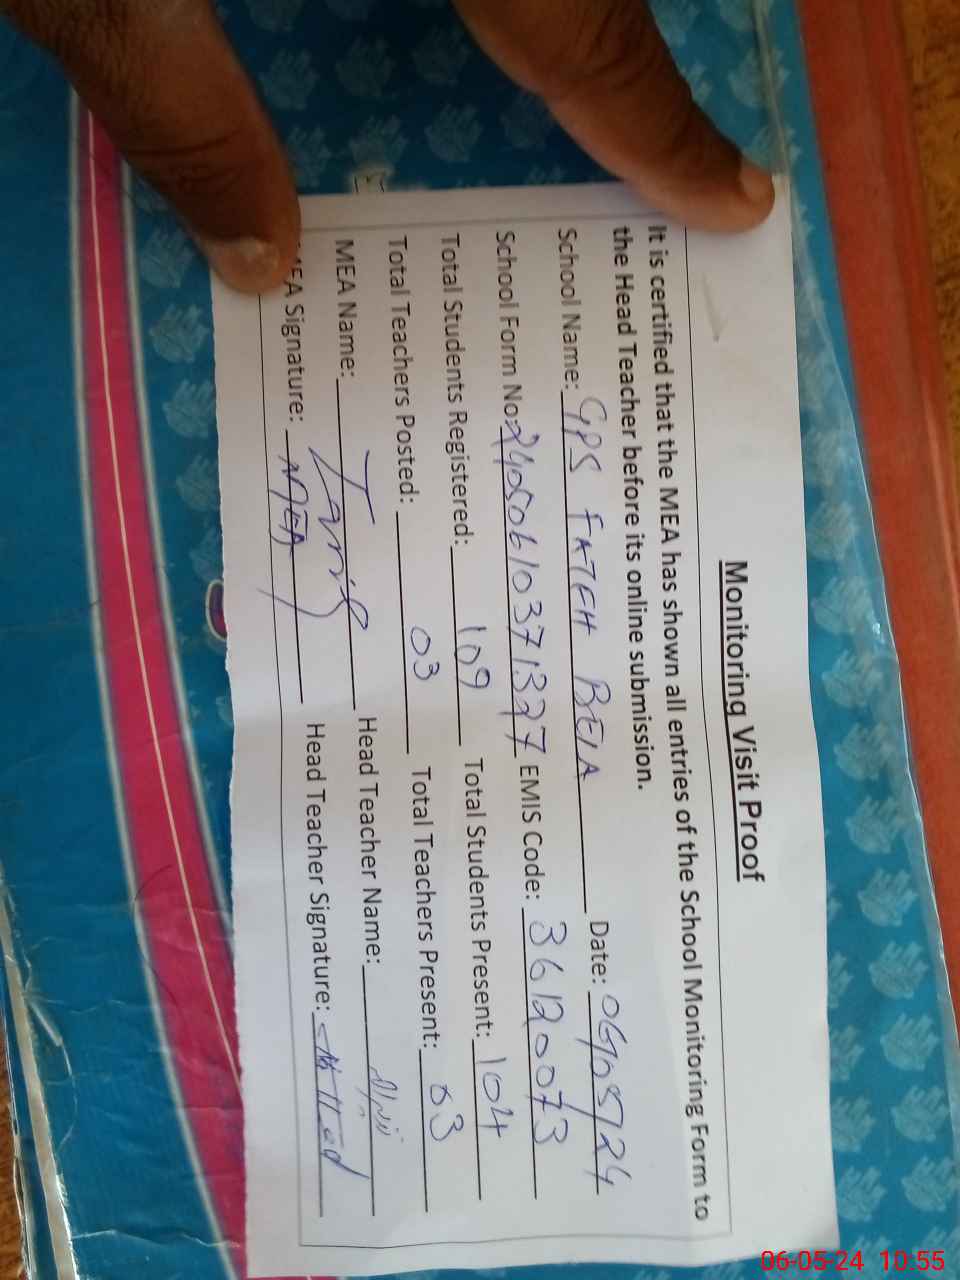 Monitoring Visit Proof
It is certified that the MEA has shown all entries of the School Monitoring Form to
the Head Teacher before its online submission.
School Name: GPS FATEH BELA Date: 06/05/24
School Form No: 24050610371327 EMIS Code: 36120073
Total Students Registered: 109 Total Students Present: 104
Total Teachers Posted: 03 Total Teachers Present: 03
MEA Name: Tariq Head Teacher Name:
MEA Signature: Head Teacher Signature:
06-05-24 10:55